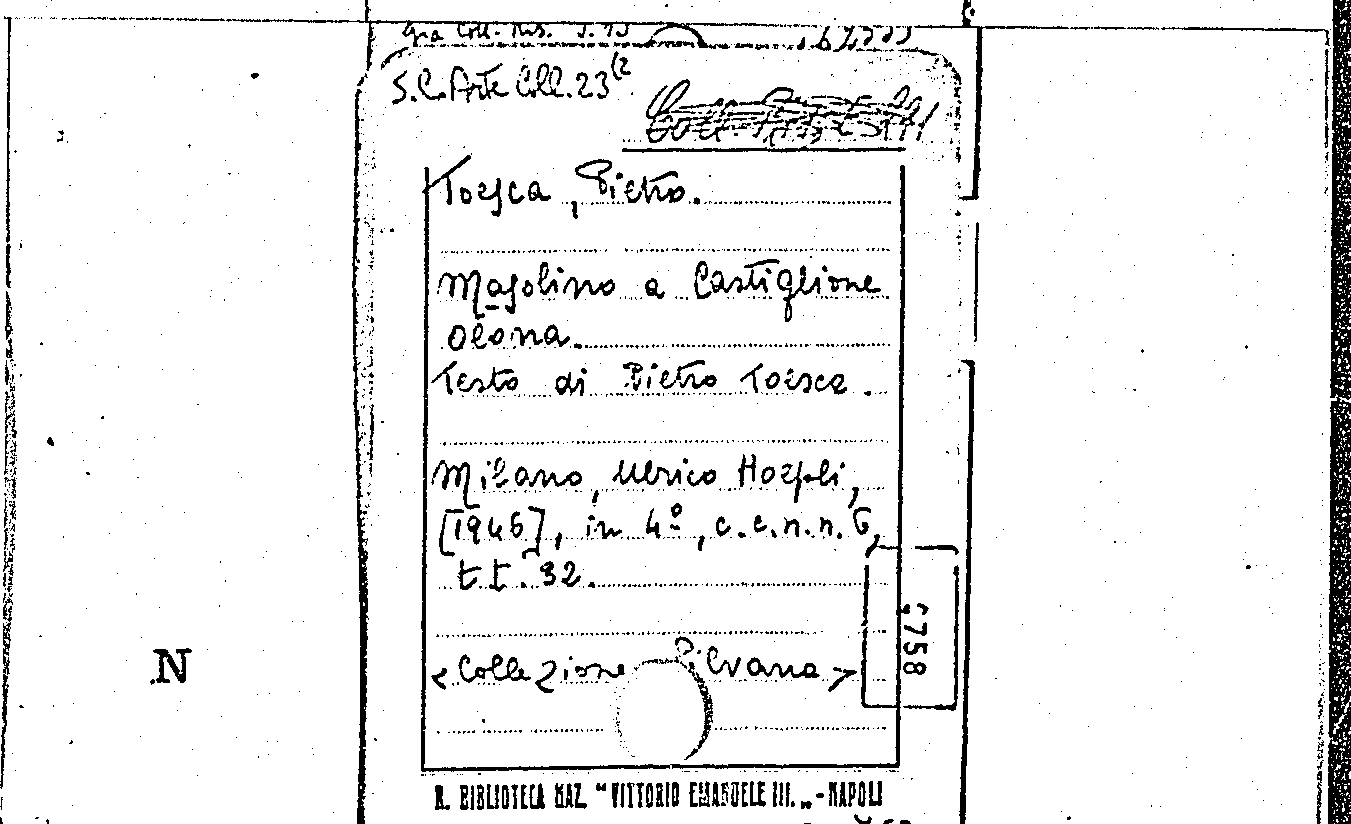 S.C. Arte Coll. 23(2
Toesca, Pietro.
Masolino a Castiglione
Olona.
Testo di Pietro Toesca.
Milano, Ulrico Hoepli,
[1946], in 4º, c.c.n.n. 6,
t.t. 32.
<Collezione Silvana>
758
N
R. BIBLIOTECA NAZ. "VITTORIO EMANUELE III.„ - NAPOLI